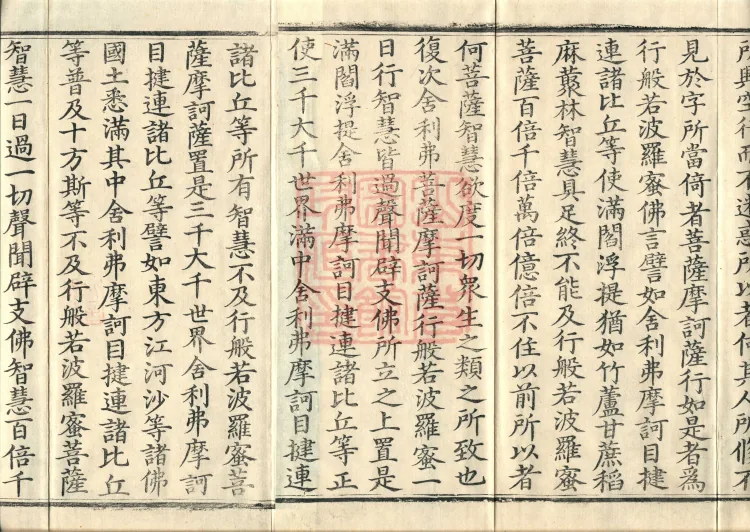 所興空行而不迷惑所以者何其人所脩不
見於字所當倚者菩薩摩訶薩行如是者為
行般若波羅蜜佛言譬如舍利弗摩訶目揵
連諸比丘等使滿閻浮提猶如竹蘆甘蔗稻
麻叢林智慧具足終不能及行般若波羅蜜
菩薩百倍千倍萬倍億倍不住以前所以者
何菩薩智慧欲度一切眾生之類之所致也
復次舍利弗菩薩摩訶薩行般若波羅蜜一
日行智慧皆過聲聞辟支佛所立之上置是
滿閻浮提舍利弗摩訶目揵連諸比丘等正
使三千大千世界滿中舍利弗摩訶目揵連
諸比丘等所有智慧不及行般若波羅蜜菩
薩摩訶薩置是三千大千世界舍利弗摩訶
目揵連諸比丘等譬如東方江河沙等諸佛
國土悉滿其中舍利弗摩訶目揵連諸比丘
等普及十方斯等不及行般若波羅蜜菩薩
智慧一日過一切聲聞辟支佛智慧百倍千